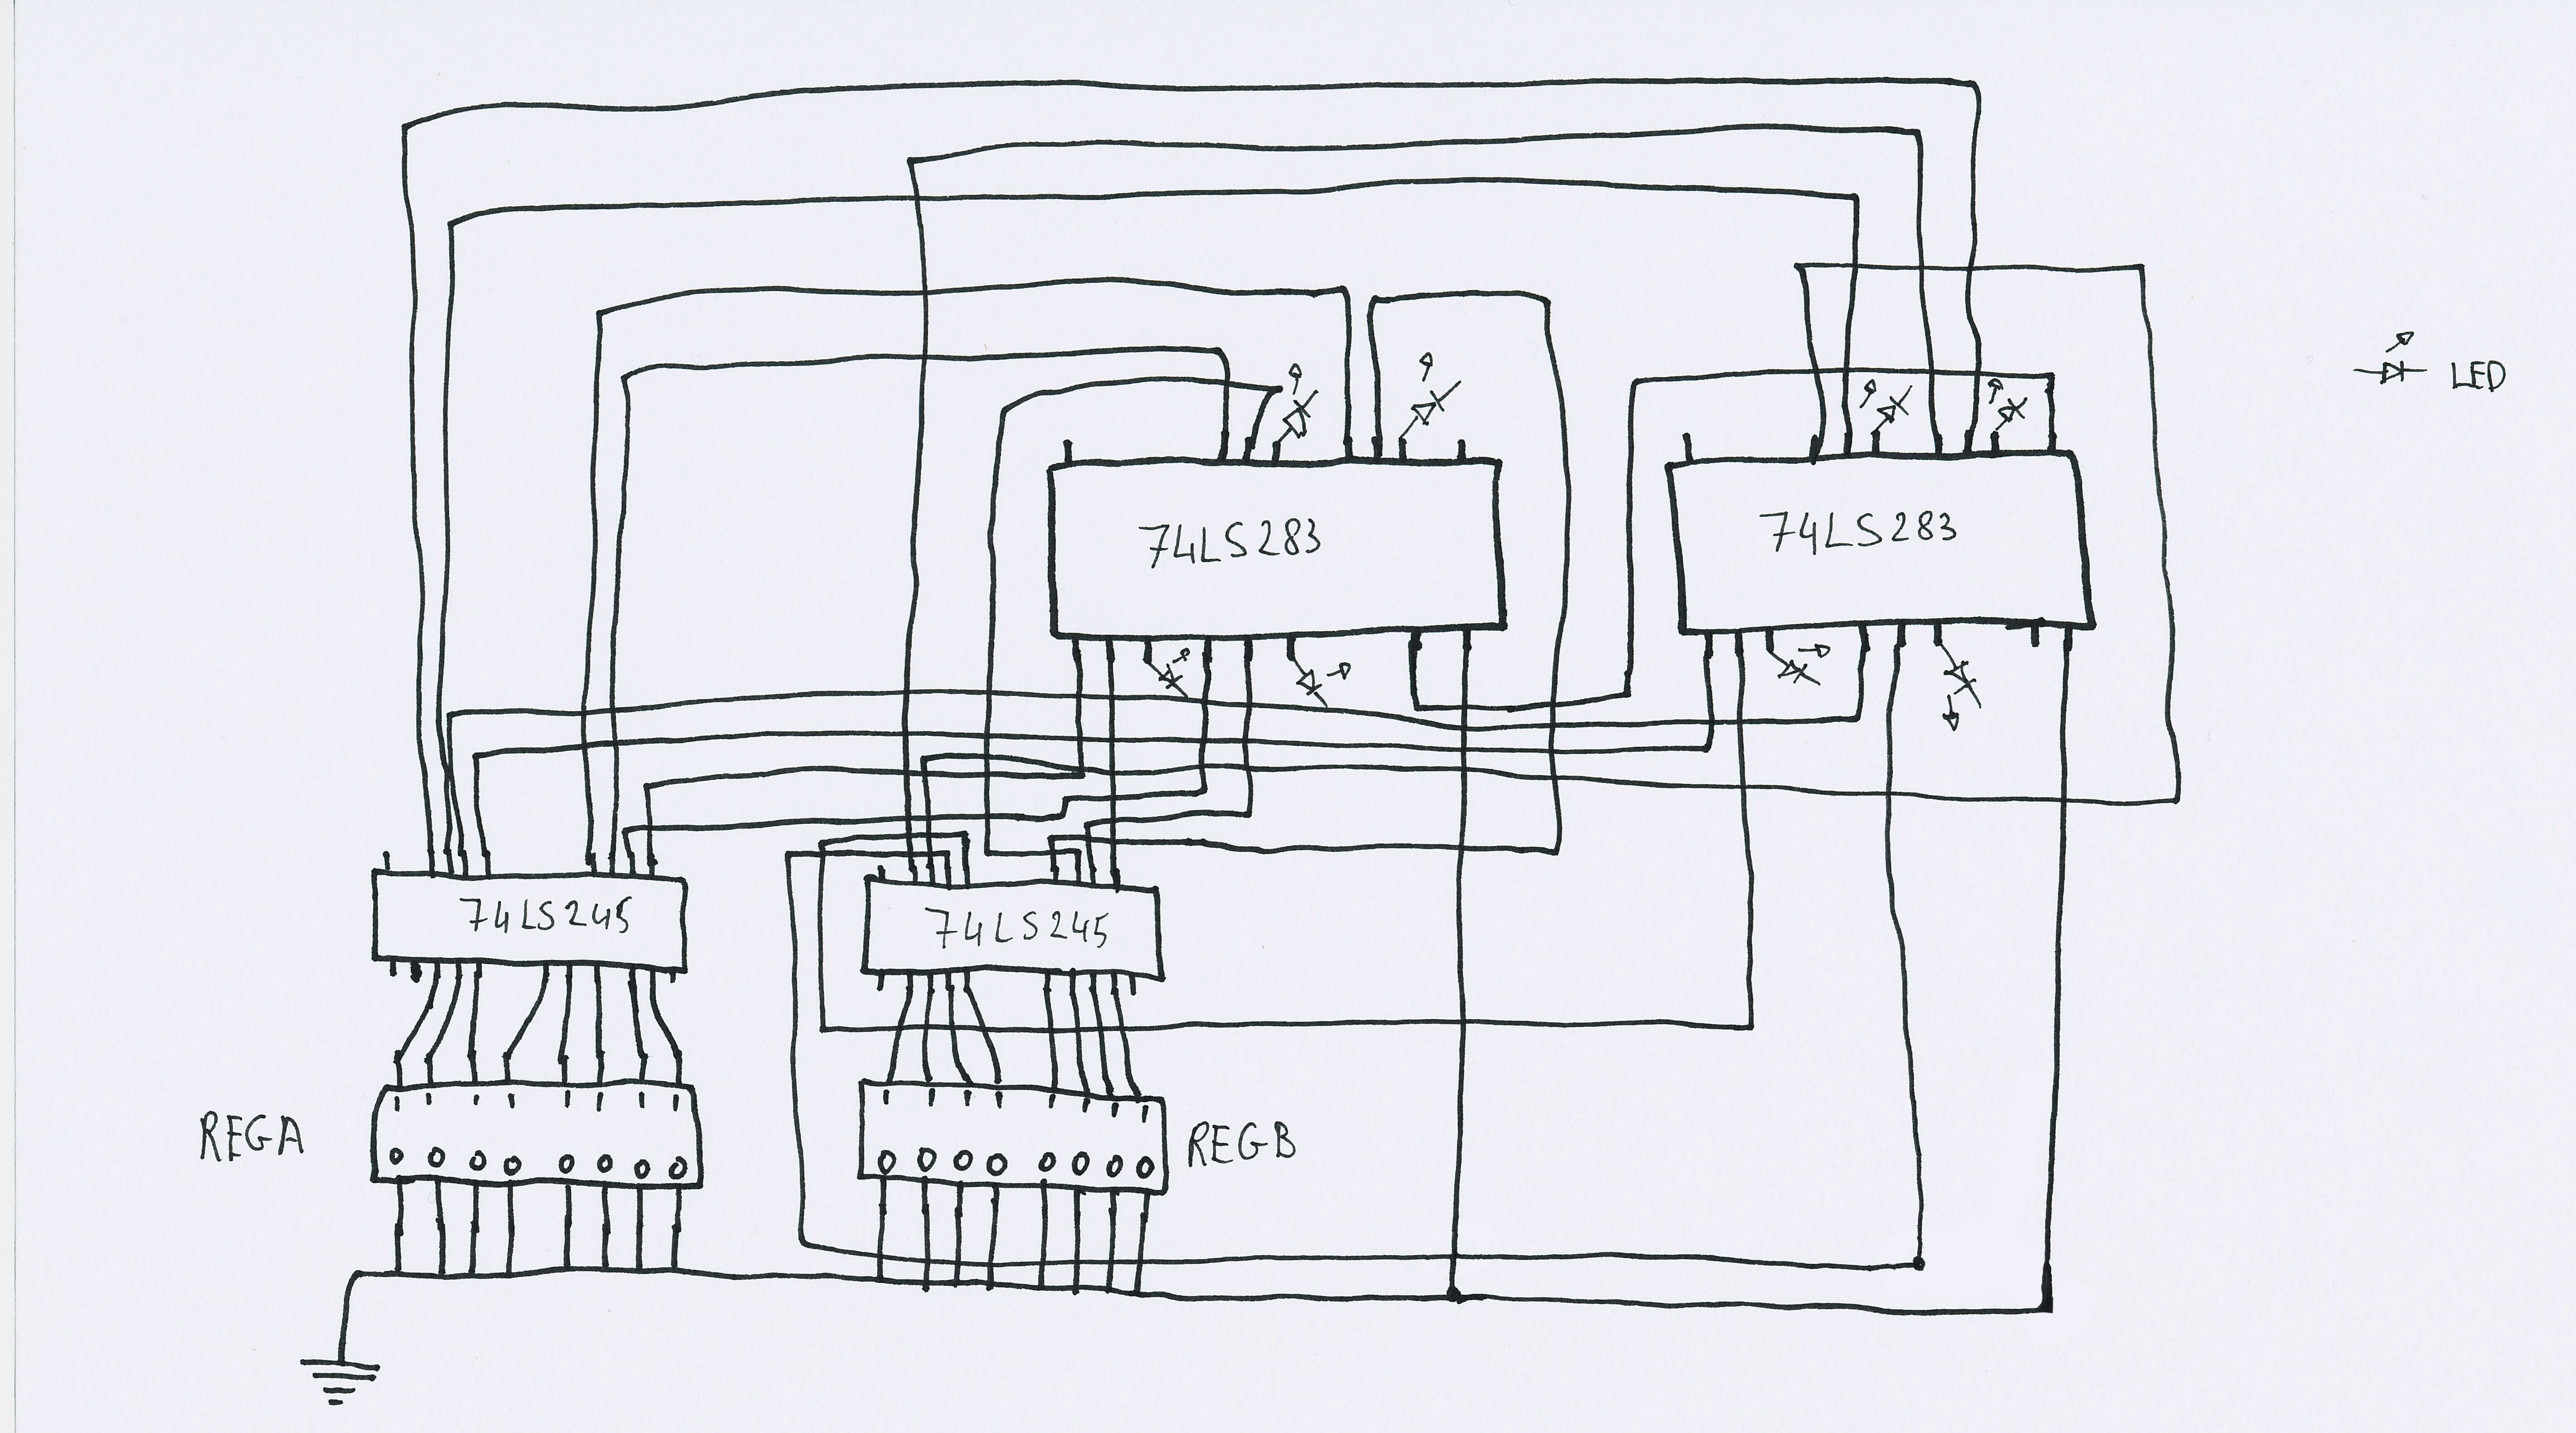 LED
74LS283
74LS283
74LS245
74LS245
REGA
REGB